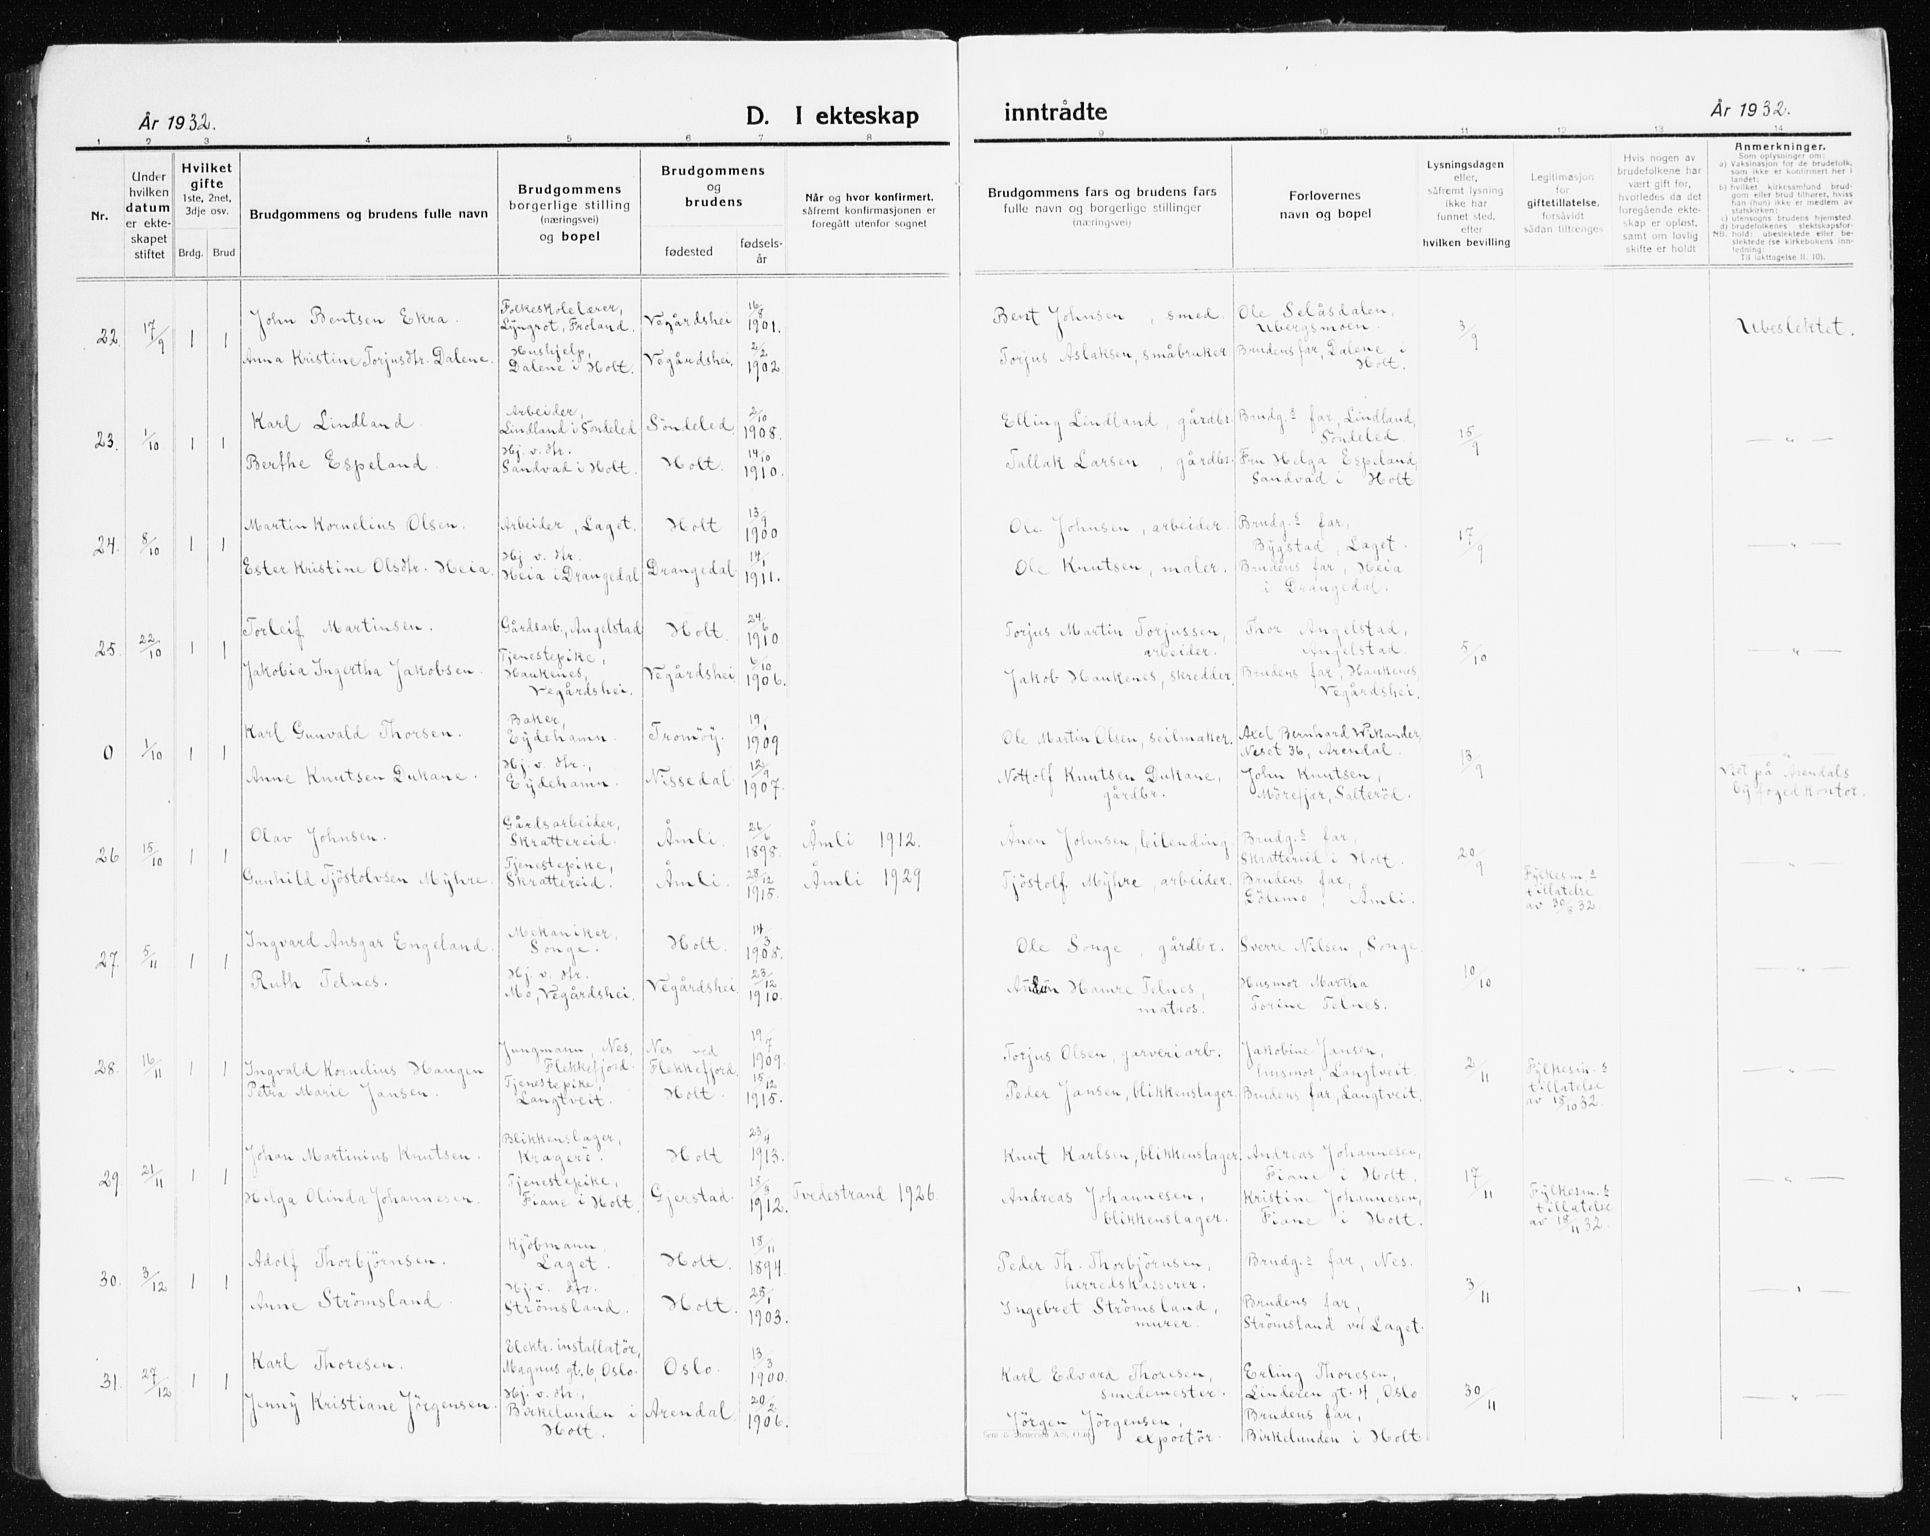 År 1932.
D. I ekteskap
inntrådte
År 1932.
1 2 3 4 5 6 7 8 9 10 11 12 13 14
Nr.
Under
hvilken
datum
er ekte-
skapet
stiftet
Hvilket
gifte
1ste, 2net,
3dje osv.
Brdg. Brud
Brudgommens og brudens fulle navn
Brudgommens
borgerlige stilling
(næringsvei)
og bopel
Brudgommens
og
brudens
fødested
fødsels-
år
Når og hvor konfirmert,
såfremt konfirmasjonen er
foregått utenfor sognet
Brudgommens fars og brudens fars
fulle navn og borgerlige stillinger
(næringsvei)
Forlovernes
navn og bopel
Lysningsdagen
eller,
såfremt lysning
ikke har
funnet sted,
efter
hvilken bevilling
Legitimasjon
for
giftetillatelse,
forsåvidt
sådan tiltrenges
Hvis nogen av
brudefolkene har
vært gift før,
hvorledes da det
foregående ekte-
skap er opløst,
samt om lovlig
skifte er holdt
Anmerkninger.
Som oplysninger om:
a) Vaksinasjon for de brudefolk,
som ikke er konfirmert her i
landet;
b) hvilket kirkesamfund brud-
gom eller brud tilhører, hvis
han (hun) ikke er medlem av
statskirken;
c) utensogns brudens hjemsted.
d) brudefolkenes slektskapsfor-
NB. hold: ubeslektede eller be-
slektede (se kirkebokens inn-
ledning:
Til iakttagelse II. 10).
22. 17/9 1 1
John Bentsen Ekra. Folkeskolelærer, Lyngrot, Froland. Vegårdshei 16/8 1901. Bent Johnsen, smed. Ole Selåsdalen, Ubergsmoen. 3/9 Ubeslektet.
Anna Kristine Torjusdtr. Dalene. Hushjelp, Dalene i Holt. Vegårdshei. 2/2 1902. Torjus Aslaksen, småbruker Brudens far, Dalene i Holt.
23. 1/10 1 1
Karl Lindland Arbeider, Lindland i Söndeled Söndeled. 2/10 1908. Elling Lindland, gårdbr. Brudg.s far, Lindland, Söndeled. 15/9 — „ —
Berthe Espeland. Hj. v. dtr. Sandvad i Holt. Holt 14/10 1910. Tallak Larsen, gårdbr. Fru Helga Espeland, Sandvad i Holt
24. 8/10 1 1
Martin Kornelius Olsen. Arbeider, Laget. Holt 13/9 1900 Ole Johnsen, arbeider. Brudg.s far, Bygstad, Laget. 17/9 — „ —
Ester Kristine Olsdtr. Heia. Hj. v. dtr. Heia i Drangedal Drangedal 14/1 1911. Ole Knutsen, maler. Brudens far, Heia i Drangedal.
25. 22/10 1 1
Torleif Martinsen. Gårdsarb., Angelstad Holt. 24/6 1910. Torjus Martin Torjussen, arbeider. Thor Angelstad, Angelstad. 5/10 — „ —
Jakobia Ingertha Jakobsen. Tjenestepike, Haukenes, Vegårdshei. Vegårdshei 6/10 1906. Jakob Haukenes, skredder. Brudens far, Haukenes, Vegårdshei.
0 1/10 1 1
Karl Gunvald Thorsen. Baker, Eydehamn. Tromöy. 19/1 1909 Ole Martin Olsen, seilmaker. Axel Bernhard Wikander, Neset 36, Arendal. 13/9 — „ —
Anne Knutsen Dukane. Hj. v. dtr., Eydehamn. Nissedal. 12/9 1907. Nottolf Knutsen Dukane, gårdbr. John Knutsen, Mörefjær, Salteröd. Viet på Arendals byfogedkontor.
26 15/10 1 1
Olav Johnsen. Gårdsarbeider, Skrattereid. Åmli. 26/6 1898. Åmli 1912. Ånen Johnsen, leilending Brudg.s far, Skrattereid i Holt. 20/9 — „ —
Gunhild Tjöstolvsen Myhre. Tjenestepike, Skrattereid. Åmli. 28/12 1915. Åmli 1929 Tjöstolf Myhre, arbeider. Brudens far, Gölemo, Åmli. Fylkesm.s tillatelse av 30/8 32.
27. 5/11 1 1
Ingvard Ansgar Engeland. Mekaniker, Songe. Holt. 14/3 1908. Ole Songe, gårdbr. Sverre Nilsen, Songe. 10/10 — „ —
Ruth Telnes. Hj. v. dtr. Mo, Vegårdshei. Vegårdshei. 23/12 1910. Hamre Telnes, matros. Husmor Martha Torine Telnes.
28. 16/11 1 1
Ingvald Kornelius Haugen Jungmann, Nes, Flekkefjord. Nes ved Flekkefjord. 19/7 1909. Torjus Olsen, garveriarb. Jakobine Jansen, husmor, Langtveit. 2/11 — „ —
Petra Marie Jansen. Tjenestepike, Langtveit. Holt. 15/12 1915. Peder Jansen, blikkenslager. Brudens far, Langtveit. Fylkesm.s tillatelse av 18/10 32.
29 21/11 1 1
Johan Martinius Knutsen. Blikkenslager, Kragerö. Holt 23/4 1913. Knut Karlsen, blikkenslager. Andreas Johannesen, Fiane i Holt. 17/11 — „ —
Helga Olinda Johannesen. Tjenestepike, Fiane i Holt. Gjerstad. 18/8 1912. Tvedestrand 1926. Andreas Johannesen, blikkenslager. Kristine Johannesen, Fiane i Holt. Fylkesm.s tillatelse av 18/11 32.
30. 3/12 1 1
Adolf Thorbjörnsen. Kjöbmann, Laget. Holt. 18/11 1894. Peder Th. Thorbjörnsen, herredskasserer. Brudg.s far, Nes. 3/11 — „ —
Anne Strömsland. Hj. v. dtr. Strömsland. Holt. 25/1 1903. Ingebret Strömsland, murer. Brudens far, Strömsland ved Laget.
31. 27/12 1 1
Karl Thoresen. Elektr. installatör, Magnus gt. 6, Oslo. Oslo. 13/3 1900. Karl Edvard Thoresen, smedemester. Erling Thoresen, Linderen gt. 4, Oslo 30/11 — „ —
Jenny Kristiane Jörgensen. Hj. v. dtr., Birkelunden i Holt. Arendal. 20/2 1906. Jörgen Jörgensen, exportör. Brudens far, Birkelunden i Holt.